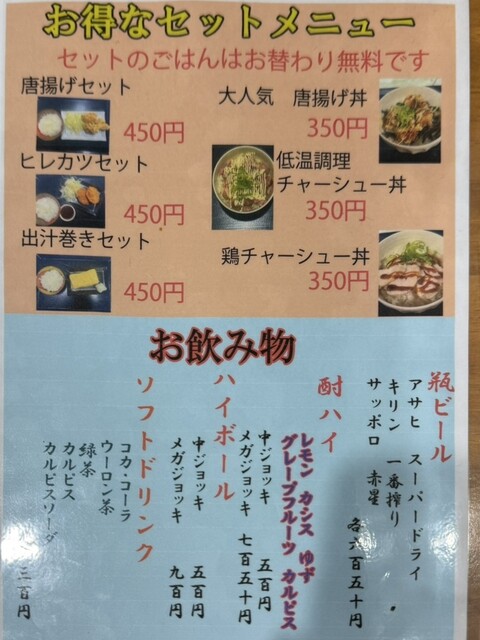 お得なセットメニュー
セットのごはんはお替わり無料です
唐揚げセット
450円
ヒレカツセット
450円
出汁巻きセット
450円
大人気 唐揚げ丼
350円
低温調理
チャーシュー丼
350円
鶏チャーシュー丼
350円
お飲み物
瓶ビール
アサヒ スーパードライ
キリン 一番搾り
サッポロ 赤星
各六百五十円
酎ハイ
レモン カシス ゆず
グレープフルーツ カルピス
中ジョッキ 五百円
メガジョッキ 七百五十円
ハイボール
中ジョッキ 五百円
メガジョッキ 九百円
ソフトドリンク
コカ・コーラ
ウーロン茶
緑茶
カルピス
カルピスソーダ
三百円